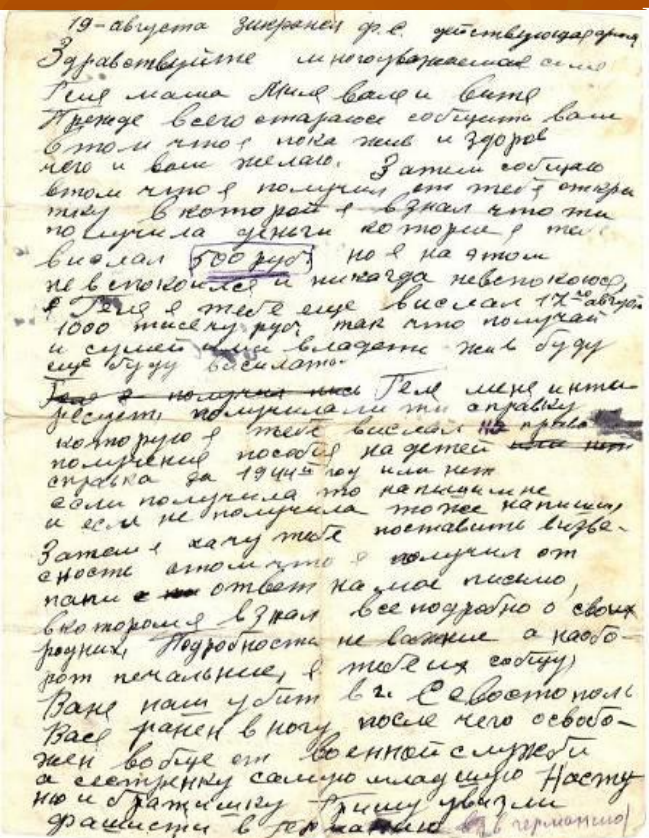 19-августа зикраней ф.е. действующая армия
Здравствуйте многоуважаемая семя
Геля мама Миля Валя и Витя
Прежде всего стараюс собщить вам
в том что я пока жив и здоров
чего и вам желаю. Затем собщаю
втом что я получил от тебя откри
тку в которой я взнал что ти
получила деньги котории я тебе
вислал 500 руб, но я на этом
не вспокоился и никагда невспокоюся,
я Геля я тебе еще вислал 17го август
1000 тисечу руб, так что получай
и сумей ими владети жив буду
еще буду висилать.
Геля я получил пись Геля меня инти
ресует, получила ли ти справку
которую я тебе вислал на право
получения пособия на детей или нет
справка за 1944й год или нет
если получила то напиши мне
и если не получила тоже напиши,
Затем я хачу тебе поставить визве-
сность отом что я получил от
папи ответ на мое письмо,
в котором я взнал все подробно о своих
родних, Подробности не важние а наобо-
рот печальние, я тебе их собщу,
Ване наш убит в г. Севостополь
Вася ранен в ногу после чего освобо-
жен вобще от военной служби
а сестренку самую младшую Насту
ню и братишку Гришу увизли
фашисти в германию в германию)